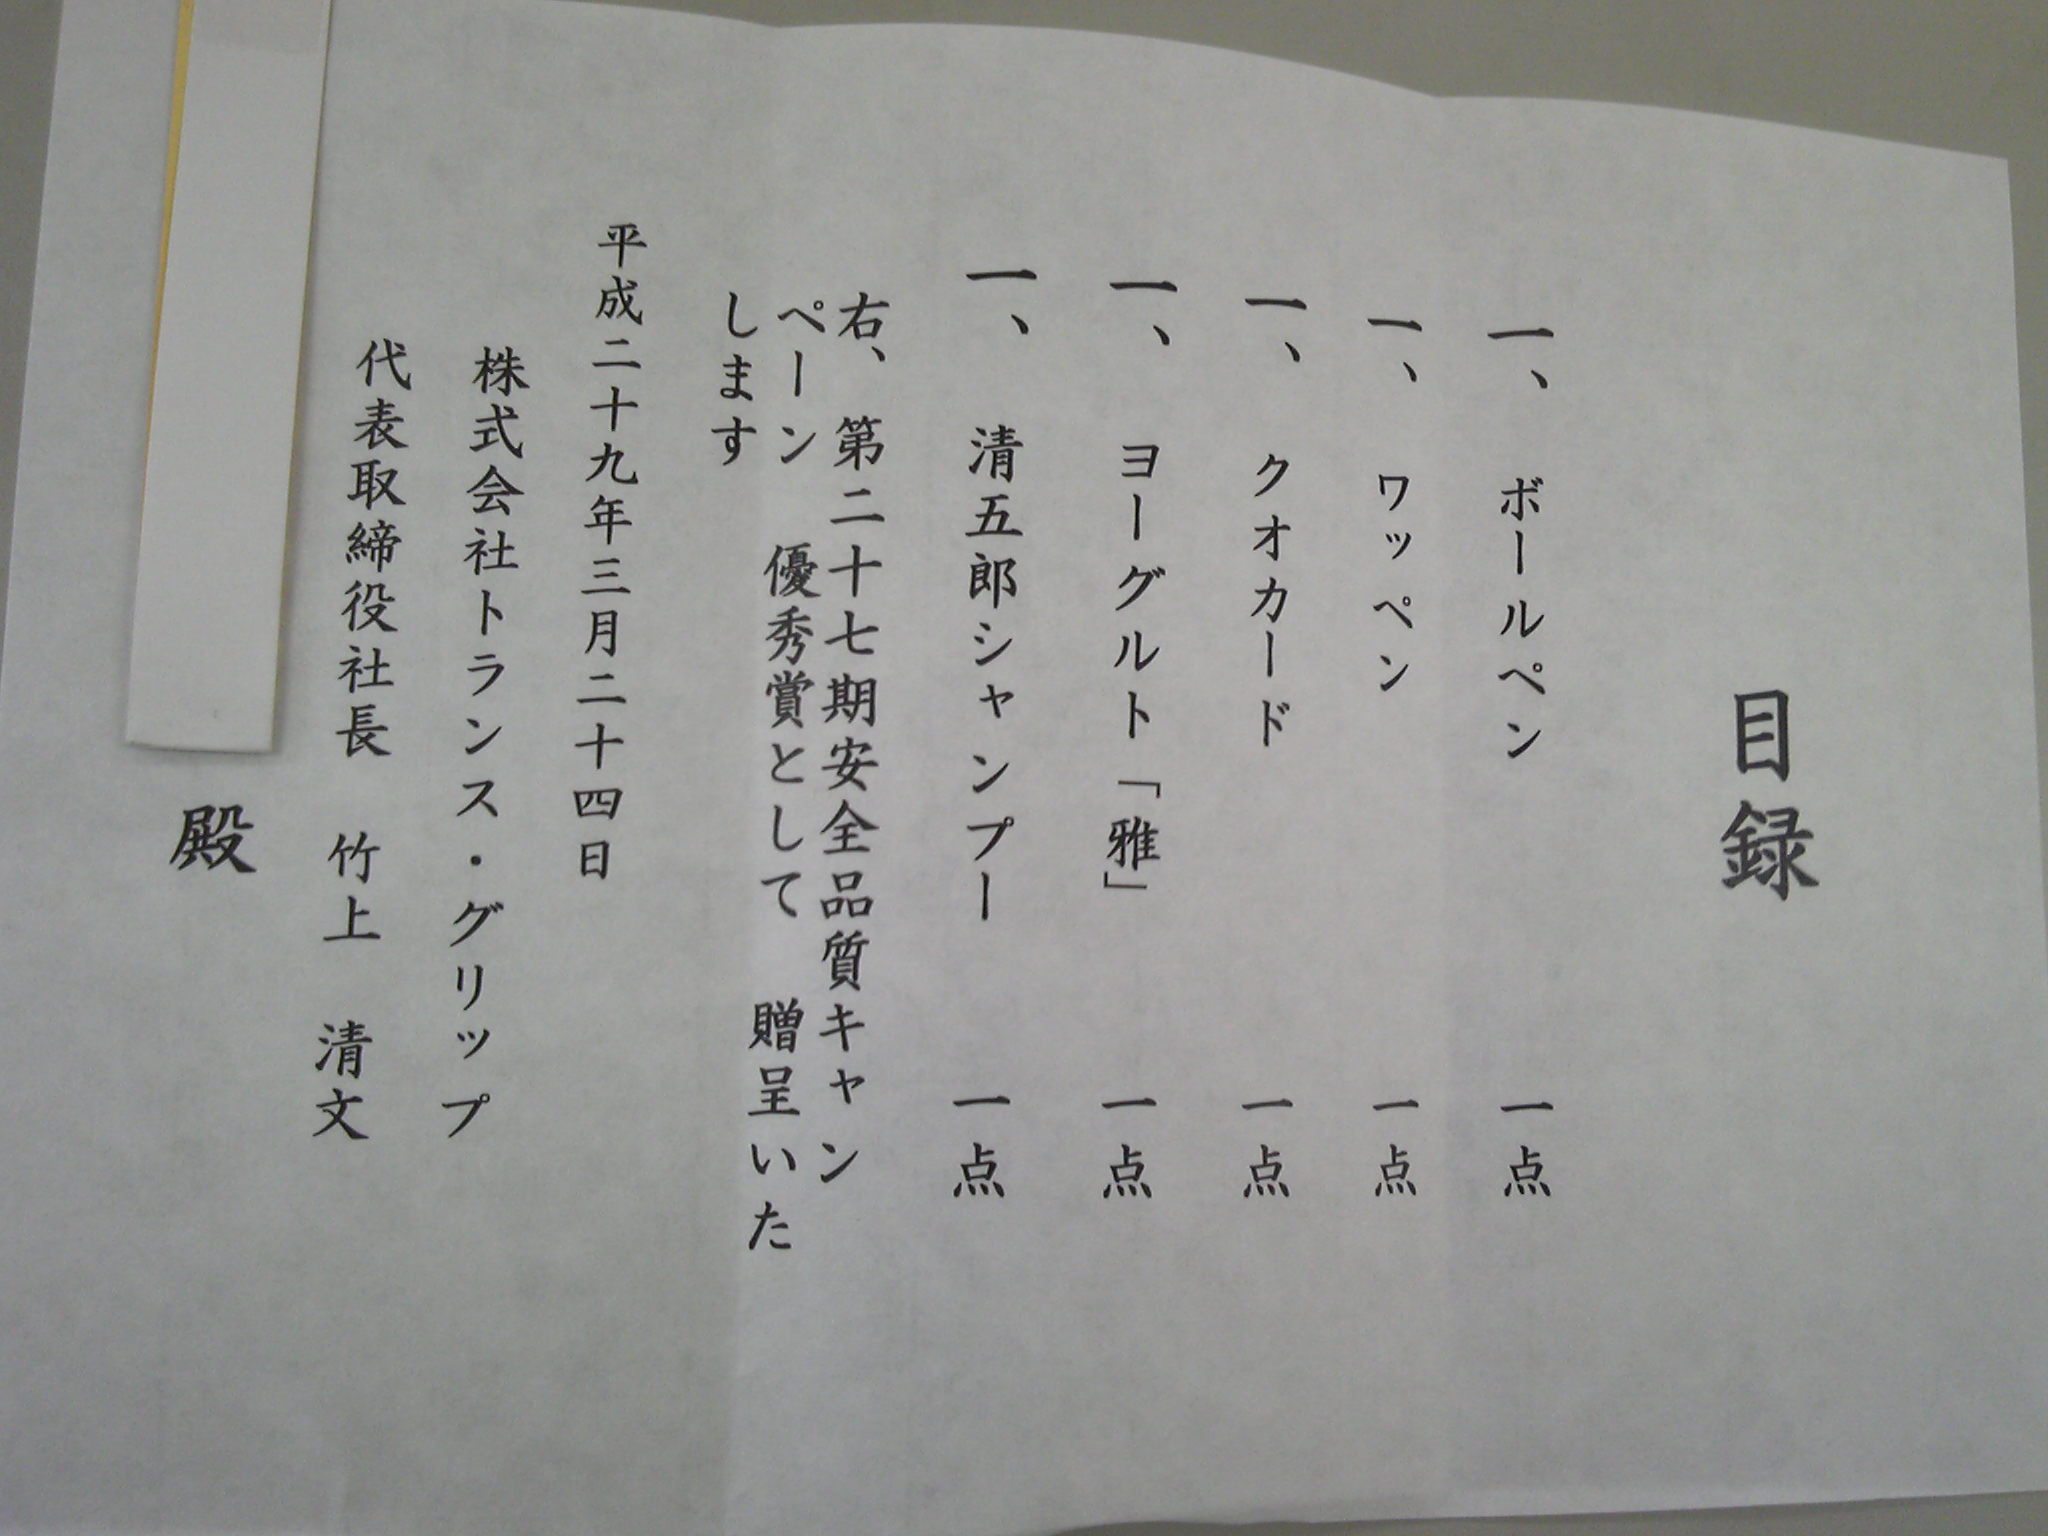 目録
一、 ボールペン 一点
一、 ワッペン 一点
一、 クオカード 一点
一、 ヨーグルト「雅」 一点
一、 清五郎シャンプー 一点
右、 第二十七期安全品質キャン
ペーン 優秀賞として 贈呈いた
します
平成二十九年三月二十四日
株式会社トランス・グリップ
代表取締役社長 竹上 清文
殿